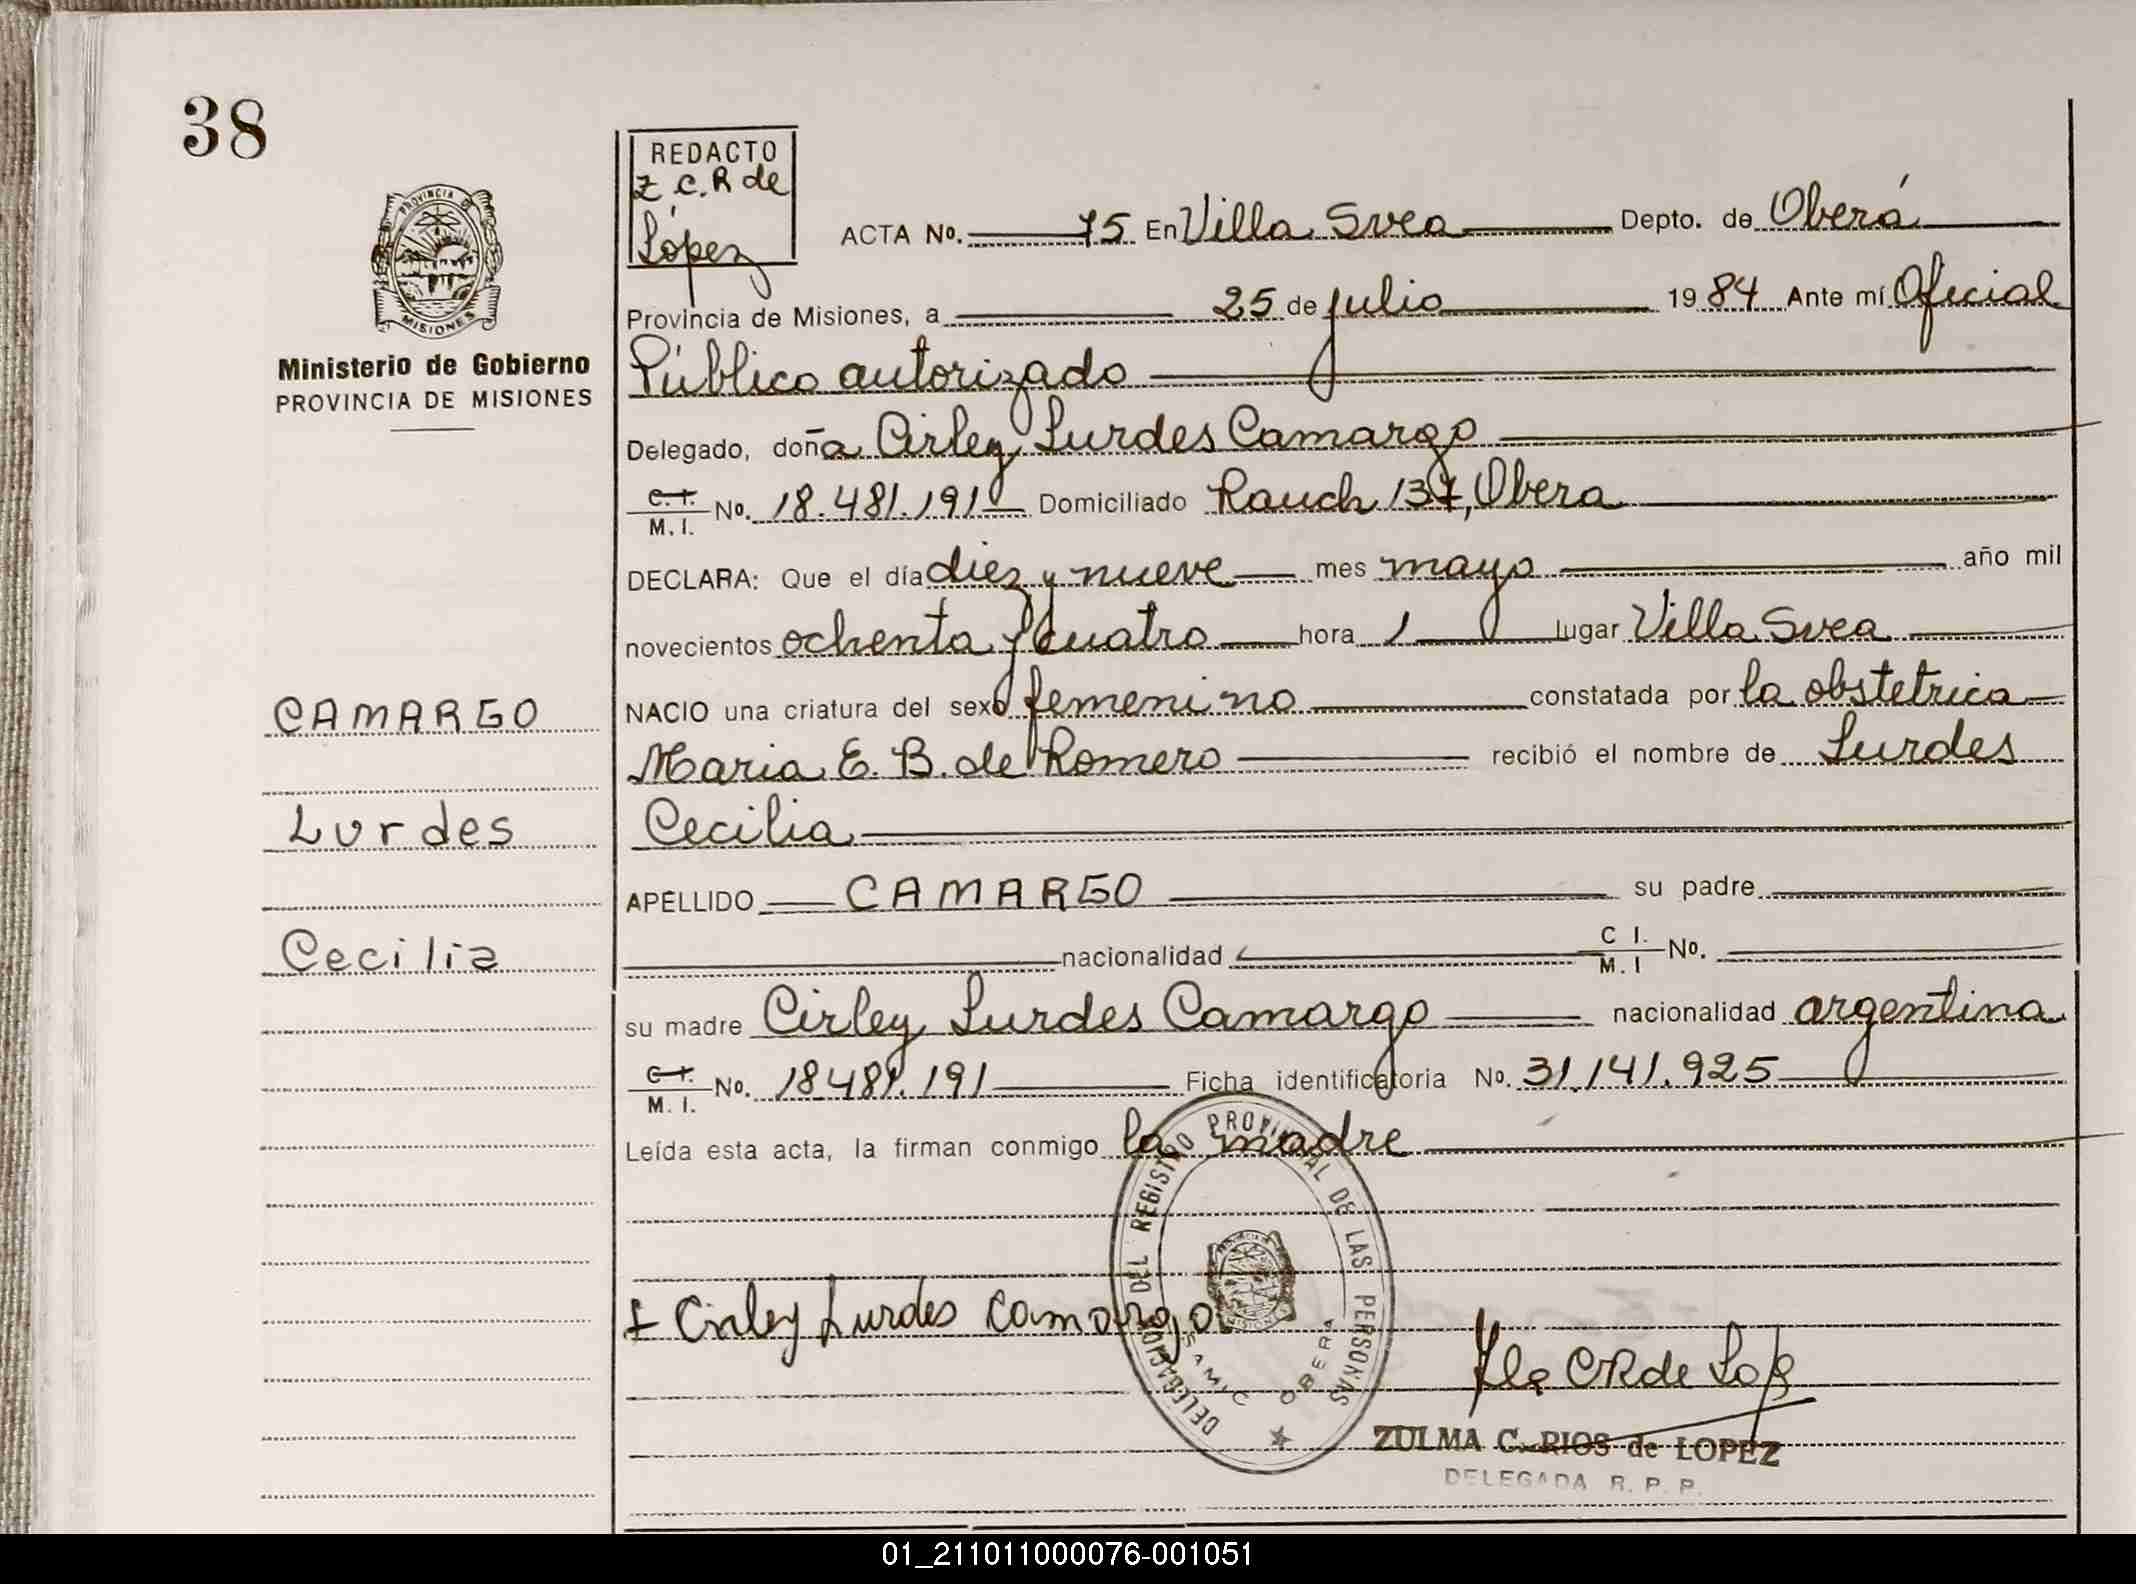 38
REDACTO
Z.C.R de
López
PROVINCIA DE
MISIONES
Ministerio de Gobierno
PROVINCIA DE MISIONES
ACTA No. 75 En Villa Svea Depto. de Oberá
Provincia de Misiones, a 25 de julio 1984 Ante mí Oficial
Público autorizado
Delegado, doña Cirley Lurdes Camargo
C.I. / M.I. No. 18.481.191 Domiciliado Rauch 137, Obera
DECLARA: Que el día diez y nueve mes mayo año mil
novecientos ochenta y cuatro hora 1 lugar Villa Svea
CAMARGO
NACIO una criatura del sexo femenino constatada por la obstetrica
Maria E. B. de Romero recibió el nombre de Lurdes
Lurdes
Cecilia
APELLIDO CAMARGO su padre
Cecilia
nacionalidad C I. / M. I No.
su madre Cirley Lurdes Camargo nacionalidad argentina
C.I. / M. I. No. 18.481.191 Ficha identificatoria No. 31.141.925
Leída esta acta, la firman conmigo la madre
DELEGACION DEL REGISTRO PROVINCIAL DE LAS PERSONAS
SAMIC OBERA
Cirley Lurdes Camargo
CR de López
ZULMA C. RIOS de LOPEZ
DELEGADA R. P. P.
01_211011000076-001051